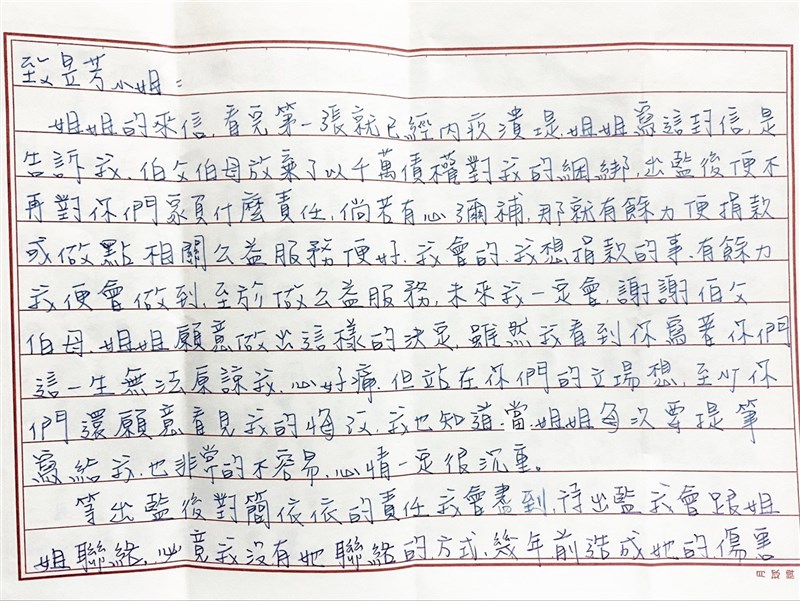 致昱芳小姐：
姐姐的來信,看完第一張就已經內疚潰堤.姐姐寫這封信,是
告訴我.伯父伯母放棄了以千萬債權對我的綑綁,出監後便不
再對你們家負什麼責任,倘若有心彌補,那就有餘力便捐款
或做點相關公益服務便好.我會的.我想捐款的事.有餘力
我便會做到,至於做公益服務,未來我一定會,謝謝伯父
伯母.姐姐願意做出這樣的決定,雖然我看到你寫著你們
這一生無法原諒我,心好痛.但站在你們的立場想,至少你
們還願意看見我的悔改.我也知道.當.姐姐每次要提筆
寫給我,也非常的不容易,心情一定很沉重。
等出監後對簡依依的責任我會盡到,待出監我會跟姐
姐聯絡,必竟我沒有她聯絡的方式.幾年前造成她的傷害